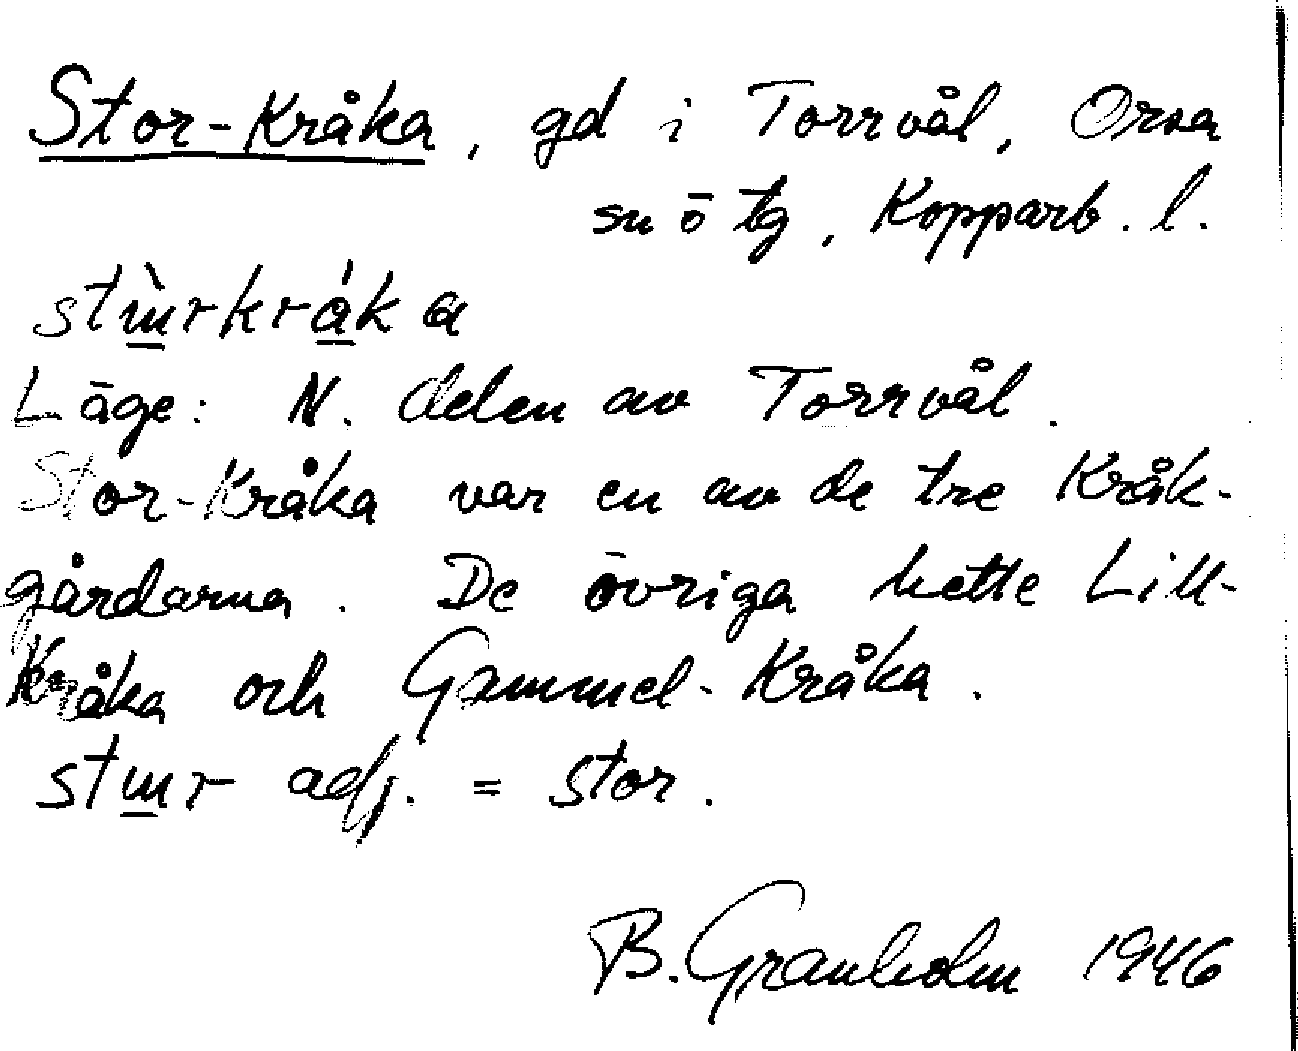 Stor-Kråka, gd i Torrvål, Orsa
sn o tg, Kopparb. l.
stɯ̱̀rkrá̱kɑ
Läge: N. delen av Torrvål.
Stor-Kråka var en av de tre Kråk-
gårdarna. De övriga hette Lill-
Kråka och Gammel-Kråka.
stɯ̱r adj. = stor.
B. Granholm 1946